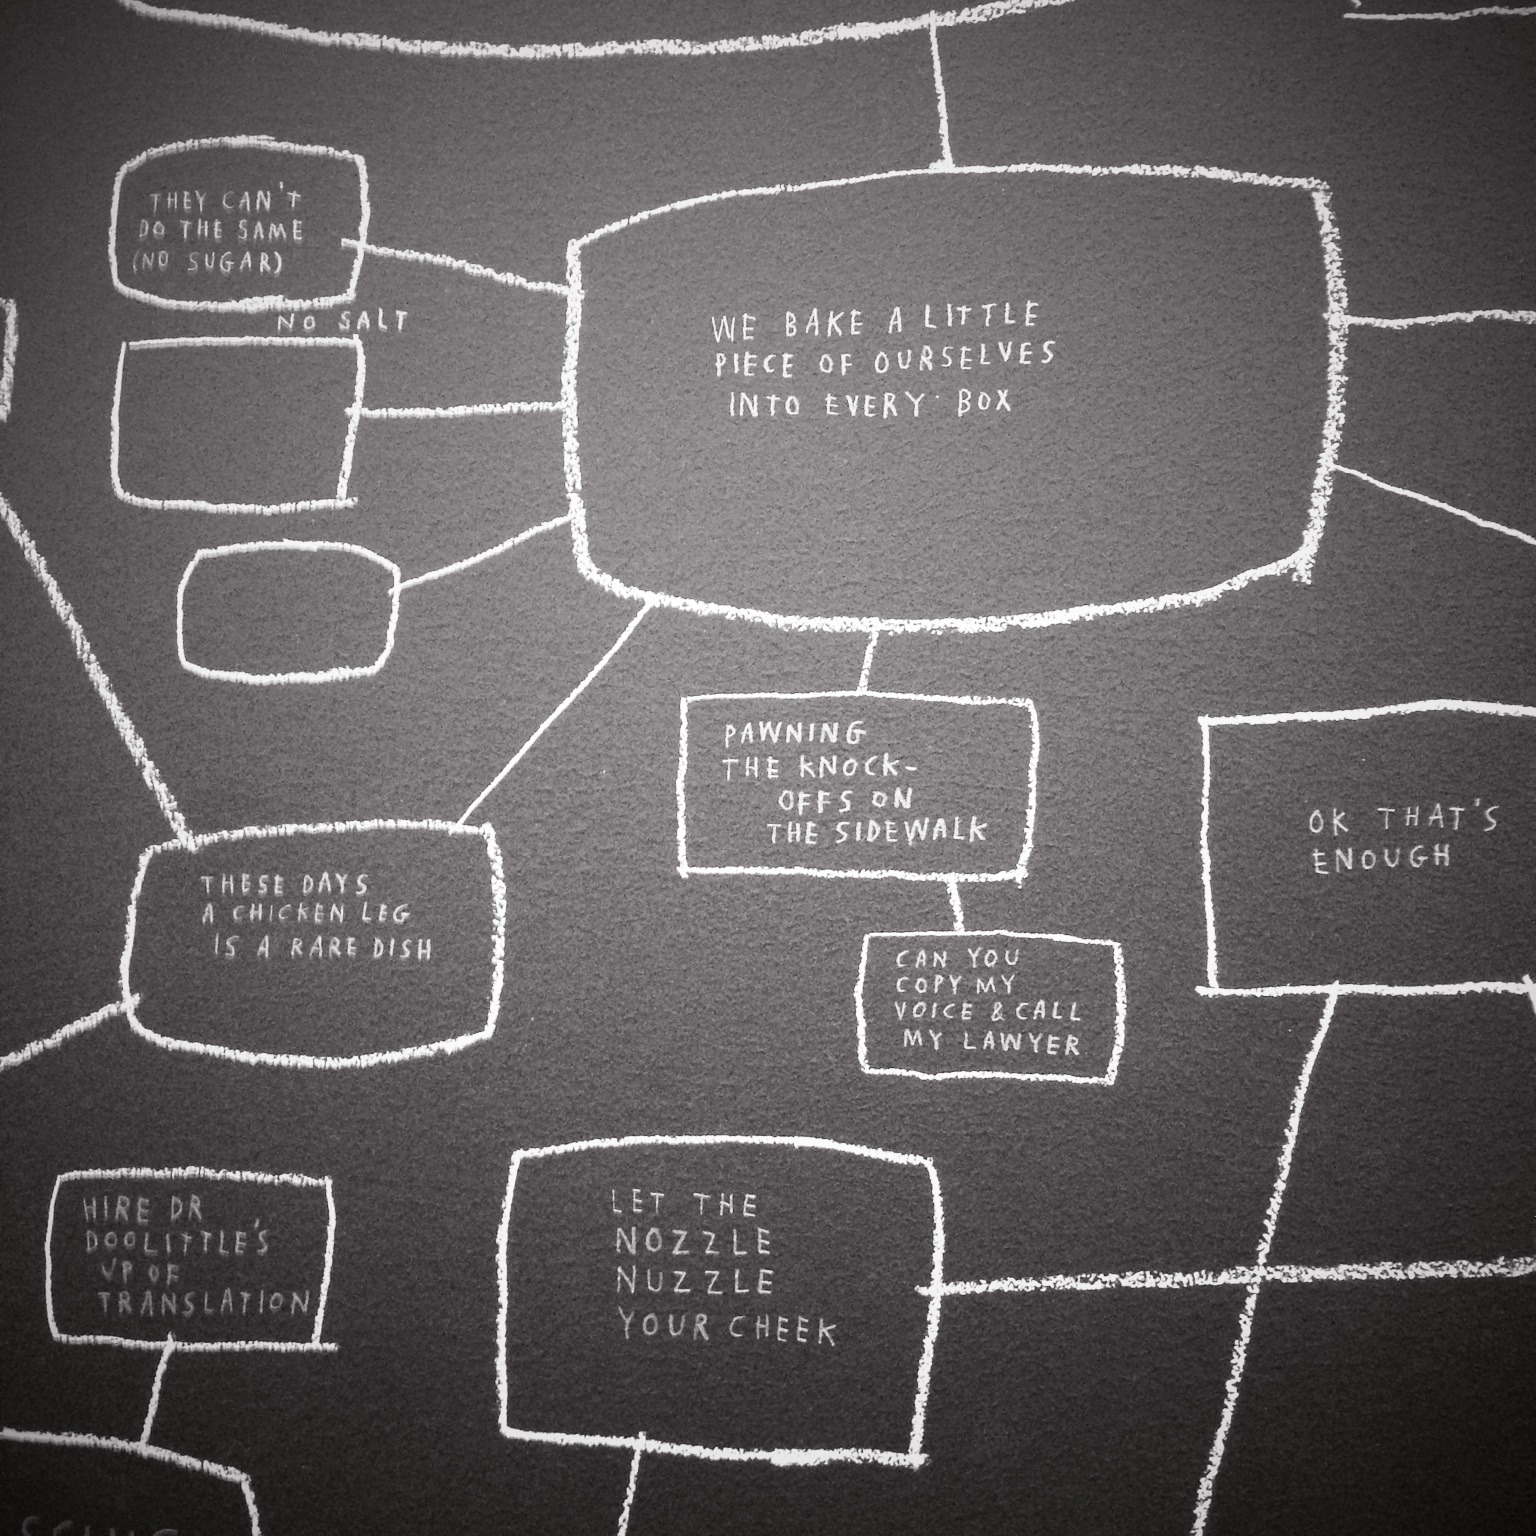 THEY CAN'T
DO THE SAME
(NO SUGAR)
NO SALT
WE BAKE A LITTLE
PIECE OF OURSELVES
INTO EVERY BOX
PAWNING
THE KNOCK-
OFFS ON
THE SIDEWALK
OK THAT'S
ENOUGH
THESE DAYS
A CHICKEN LEG
IS A RARE DISH
CAN YOU
COPY MY
VOICE & CALL
MY LAWYER
HIRE DR
DOOLITTLE'S
VP OF
TRANSLATION
LET THE
NOZZLE
NUZZLE
YOUR CHEEK